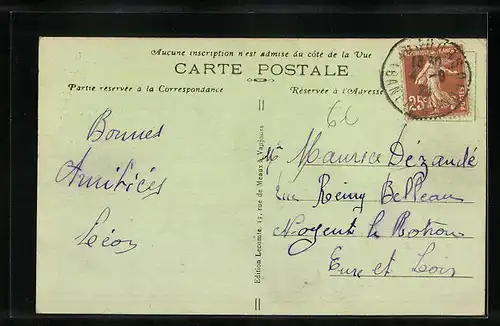 Aucune inscription n'est admise du côté de la Vue
CARTE POSTALE
Partie réservée à la Correspondance
Réservée à l'Adresse
62
Bonnes
Amitiés
Léon
Edition Lecomte, 13, rue de Meaux à Vaujours
Mr Maurice Dézandé
Rue Remy Belleau
Nogent le Rotrou
Eure et Loir
25c
POSTES